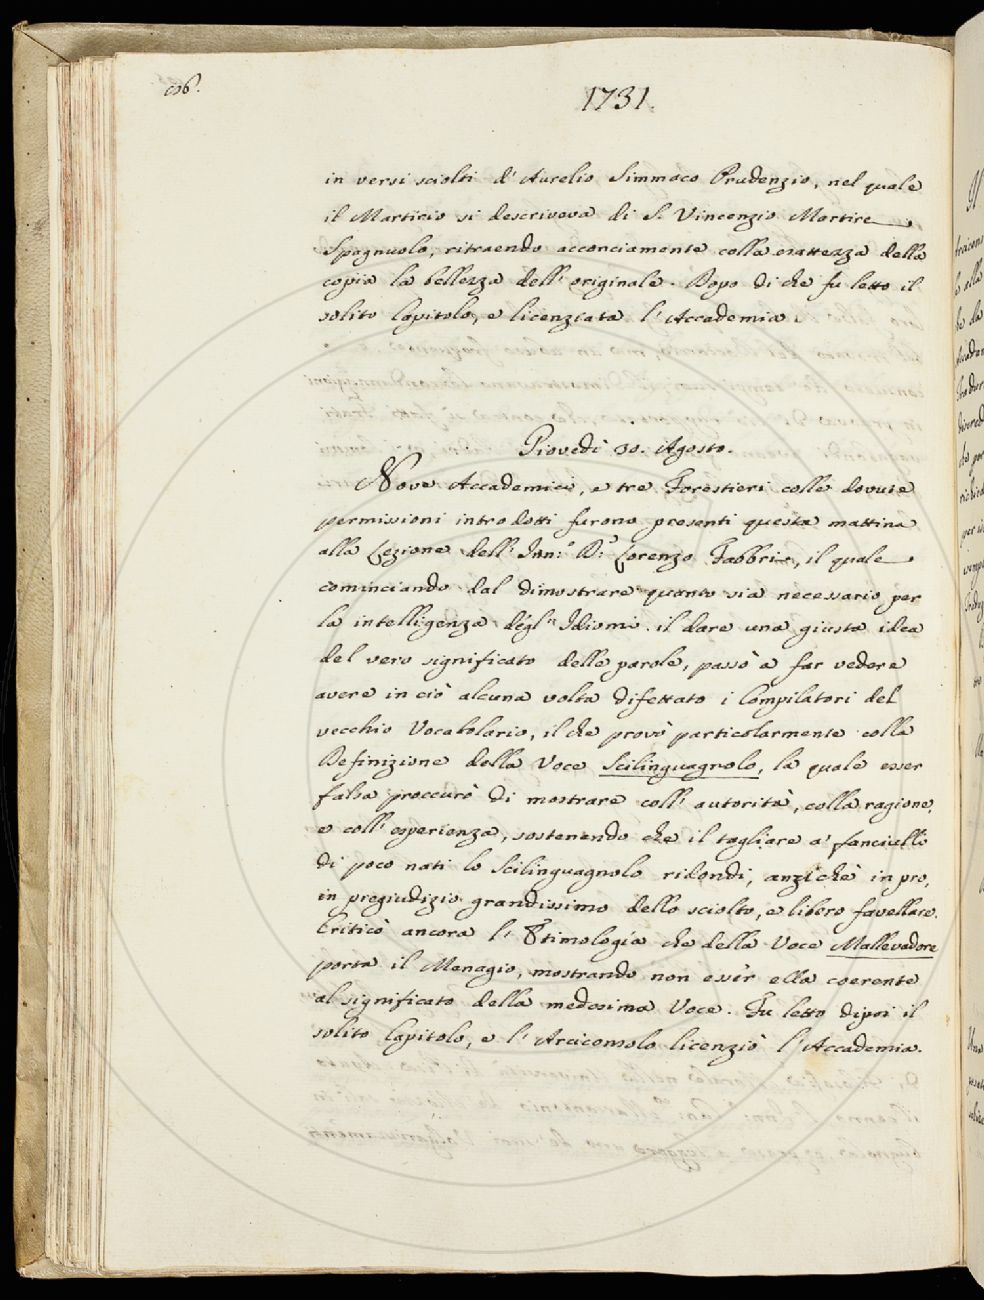 1731.
in versi sciolti d' Aurelio Simmaco Prudenzio, nel quale
il Martirio si descriveva di S. Vincenzio Martire
Spagnuolo, ritraendo acconciamente colla esattezza della
copia la bellezza dell' originale. Dopo di che fu letto il
solito Capitolo, e licenziata l' Accademia.
Giovedì 30. Agosto.
Nove Accademici, e tre Forestieri colle dovute
permissioni introdotti furono presenti questa mattina
alla Lezione dell' Inn.º D.r Lorenzo Fabbri, il quale
cominciando dal dimostrare quanto sia necessario per
la intelligenza degl' Idiomi il dare una giusta idea
del vero significato delle parole, passò a far vedere
avere in ciò alcuna volta difettato i Compilatori del
vecchio Vocabolario, il che provò particolarmente colla
Definizione della Voce Scilinguagnolo, la quale esser
falsa proccurò di mostrare coll' autorità, colla ragione,
e coll' esperienza, sostenendo che il tagliare a' fanciulli
di poco nati lo Scilinguagnolo ridondi, anzichè in pro,
in pregiudizio grandissimo dello sciolto, e libero favellare.
Criticò ancora l' Etimologia che della Voce Mallevadore
porta il Menagio, mostrando non esser ella coerente
al significato della medesima Voce. Fu letto dipoi il
solito Capitolo, e l' Arciconsolo licenziò l' Accademia.